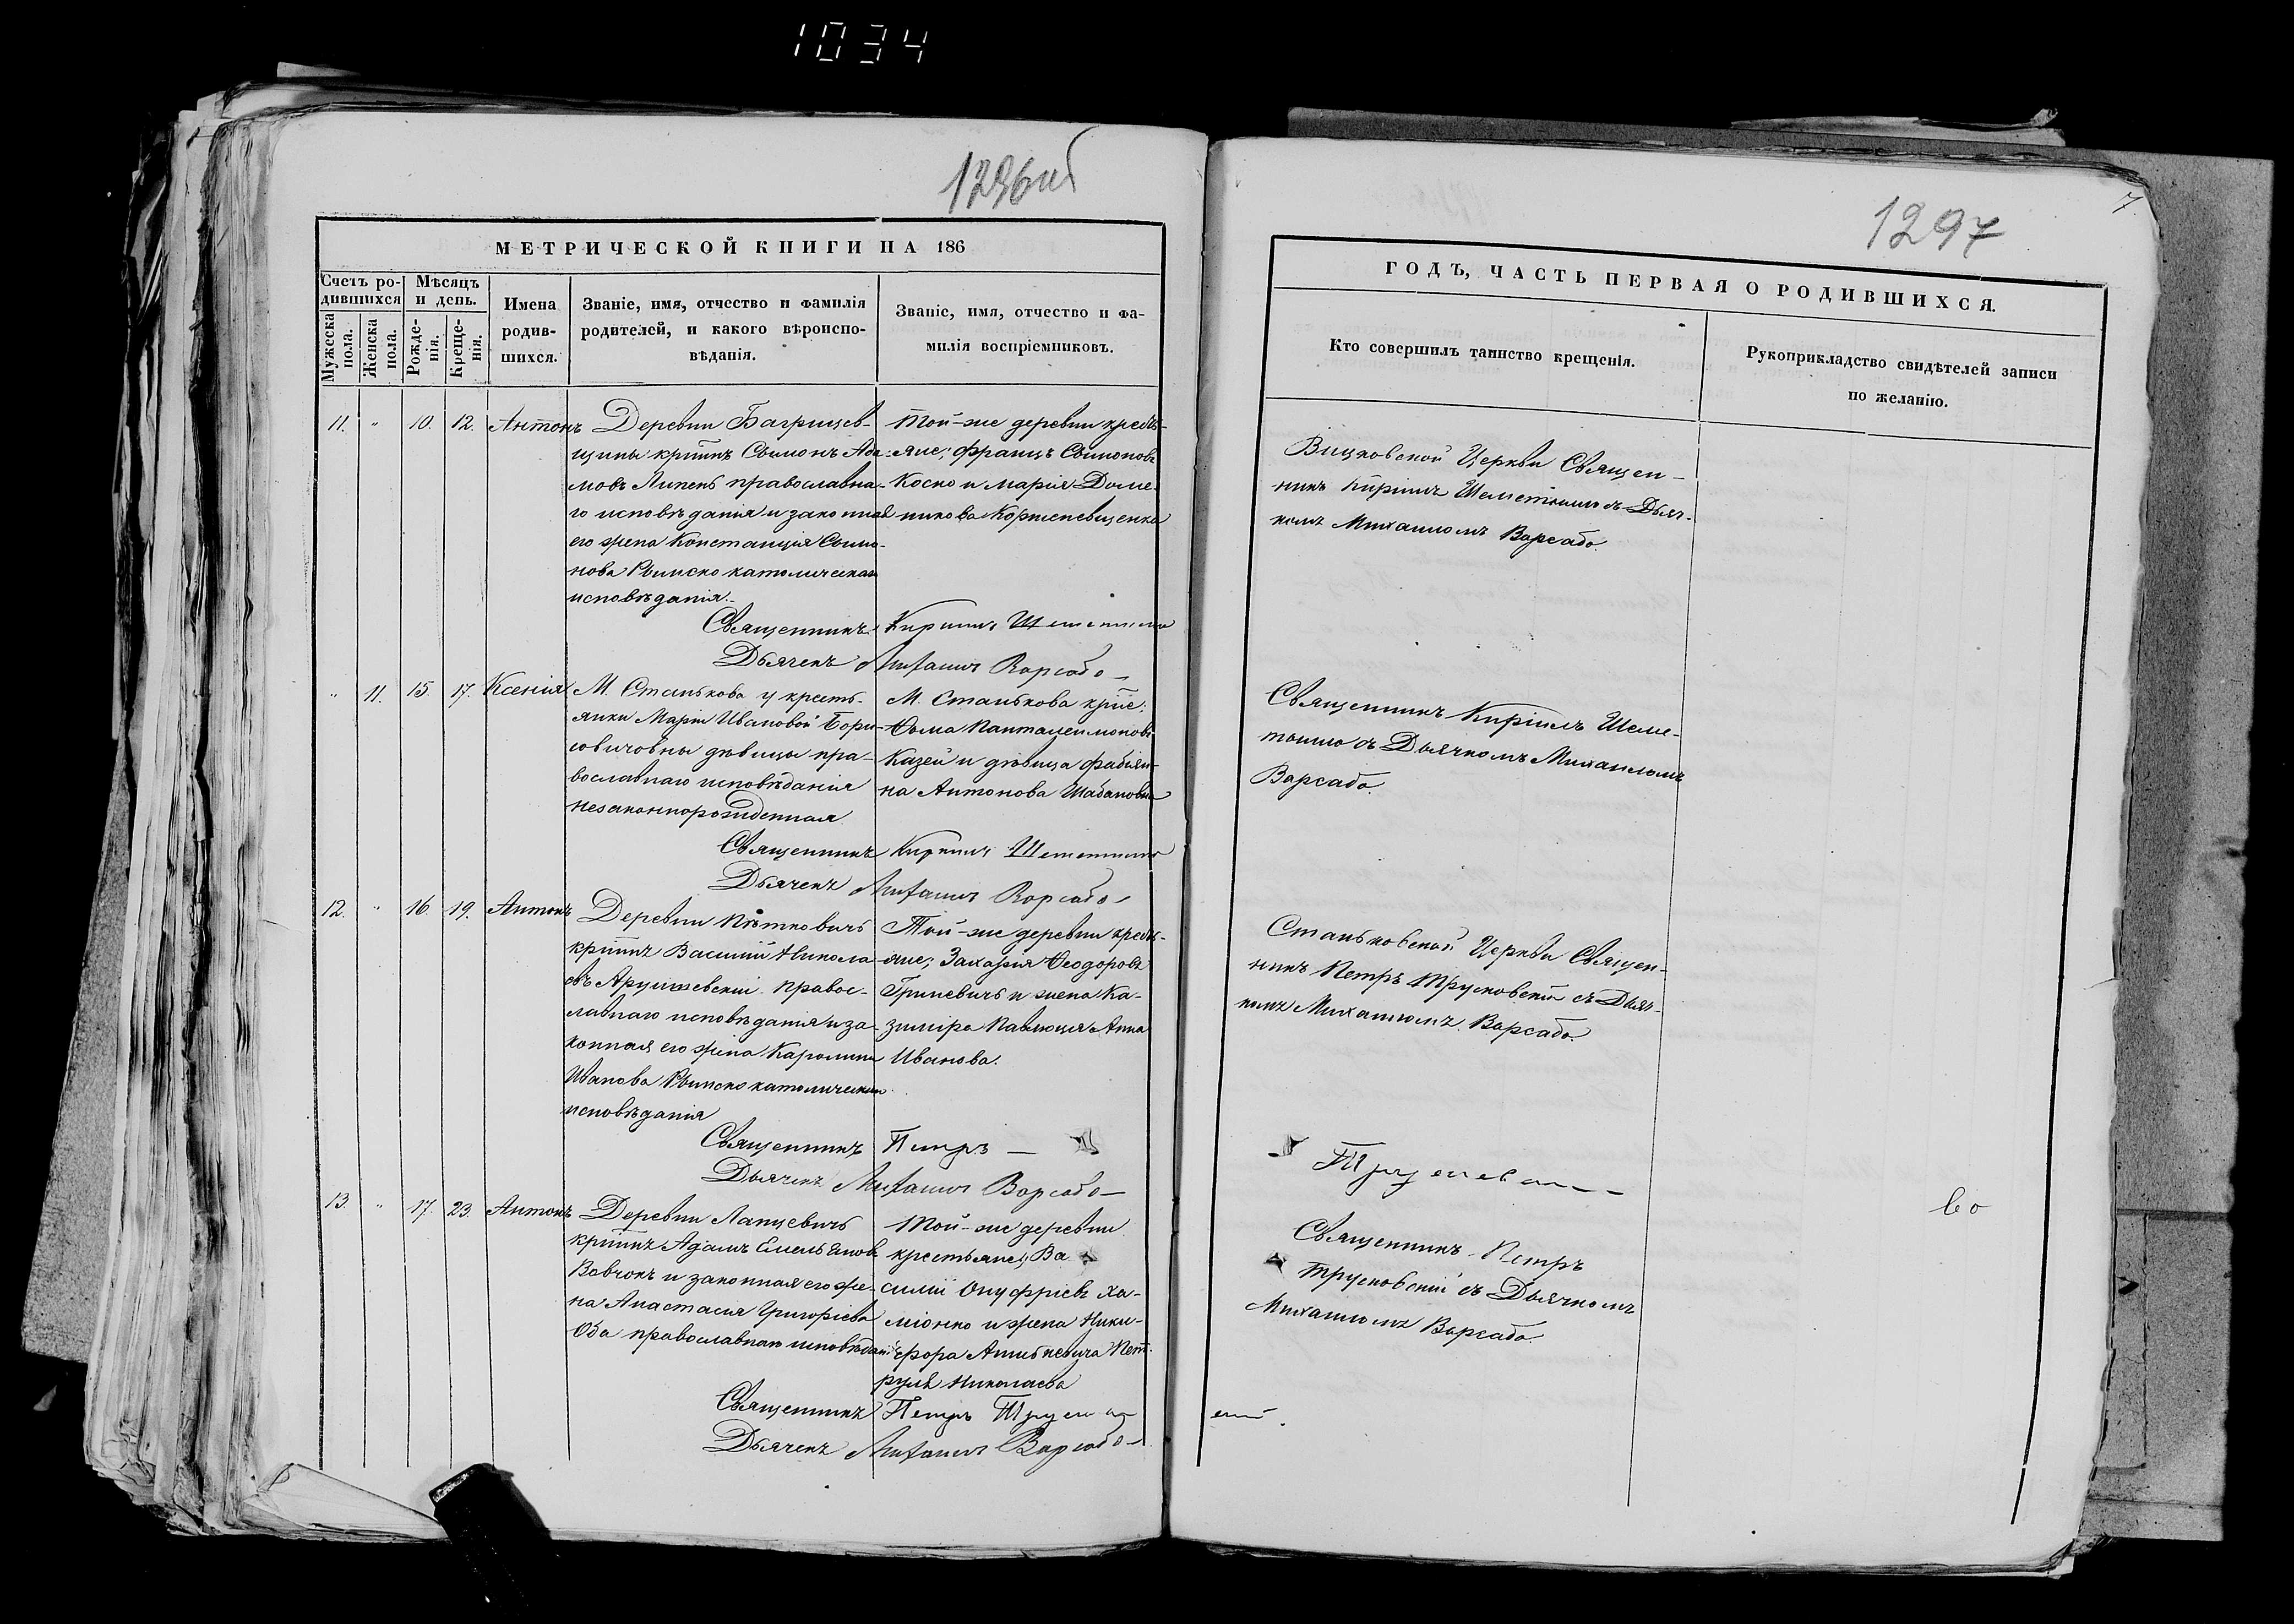 1034
1296 об
МЕТРИЧЕСКОЙ КНИГИ НА 186
Счетъ ро-
дившихся
Мѣсяцъ
и день.
Мужеска
пола.
Женска
пола.
Рожде-
нія.
Креще-
нія.
Имена
родив-
шихся.
Званіе, имя, отчество и фамилія
родителей, и какого вѣроиспо-
вѣданія.
Званіе, имя, отчество и фа-
милія воспріемниковъ.
11. " 10. 12. Антонъ
Деревни Багрицев-
щины кртнъ Сѵмонъ Ада-
мовъ Липень православна-
го исповѣданія и законная
его жена Констанція Сѵмо-
нова Римско католическаго
исповѣданія.
Той-же деревни кресть-
яне; Францъ Сѵмоновъ
Коско и Марія Доме-
никова
Священникъ Кириллъ
Дьячекъ Михаилъ Варсабо
" 11. 15. 17. Ксенія
М. Станькова у кресть-
янки Маріи Ивановой Бори-
совичовны дѣвицы пра-
вославнаго исповѣданія
незаконнорожденная
М. Станькова крне:
Ѳома Пантелеимоновъ
Казей и дѣвица Фабіян-
на Антонова Шабановна
Священникъ Кириллъ
Дьячекъ Михаилъ Варсабо
12. " 16. 19. Антонъ
Деревни Пѣтковичь
кртнъ Василій Никола-
евъ правос-
лавнаго исповѣданія и за-
конная его жена Каролина
Иванова Римско католическаго
исповѣданія
Той-же деревни кресть-
яне; Захарія Ѳеодоровъ
Гриневичь и жена Ка-
зиміра Павлюця Анна
Иванова.
Священникъ Петръ
Дьячекъ Михаилъ Варсабо
13. " 17. 23. Антонъ
Деревни Лапцевичь
кртнъ Адамъ Емельяновъ
Вовчокъ и законная его же-
на Анастасія Григоріева
Оба православнаго исповѣдан:
Той-же деревни
крестьяне; Ва
силій Онуфріевъ Ха-
мiонко и жена Ники-
фора Пет-
руля Николаева
Священникъ Петръ
Дьячекъ Михаилъ Варсабо
7.
1297
ГОДЪ, ЧАСТЬ ПЕРВАЯ О РОДИВШИХСЯ.
Кто совершилъ таинство крещенія.
Рукоприкладство свидѣтелей записи
по желанію.
Вицковской Церкви Священ-
никъ Киріллъ Шеметилло съ Дьяч-
комъ Михаиломъ Варсабо.
Священникъ Киріллъ Шеме-
тилло съ Дьячкомъ Михаиломъ
Варсабо.
Станьковской Церкви Священ-
никъ Петръ Трусковскій съ Дьяч-
комъ Михаиломъ Варсабо.
Священникъ Петръ
Трусковскій съ Дьячкомъ
Михаиломъ Варсабо.